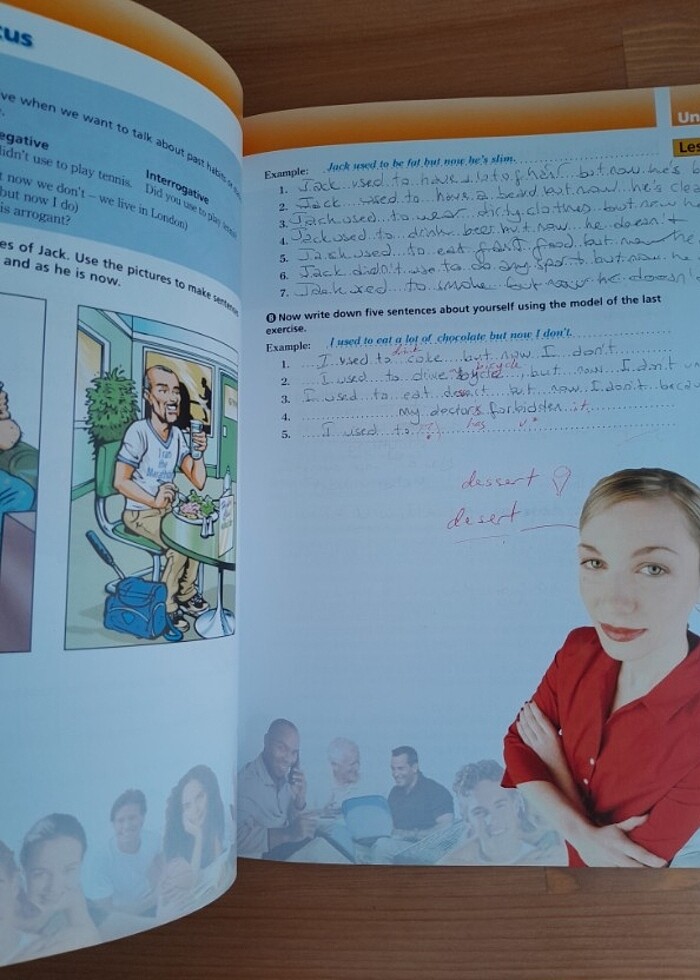 cus
ve when we want to talk about past habits or
egative
didn't use to play tennis.
Interrogative
Did you use to play tennis
t now we don't – we live in London)
but now I do)
is arrogant?)
es of Jack. Use the pictures to make sentences
and as he is now.
I ran
the
Marathon
Un
Les
Example: Jack used to be fat but now he's slim.
1. Jack used to have a lot of hair but now he's b
2. Jack used to have a beard but now he's clea
3. Jack used to wear dirty clothes but now he
4. Jack used to drink beer but now he doesn't
5. Jack used to eat food but now he
6. Jack didn't use to do any sport but now he
7. Jack used to smoke but now he doesn't
B Now write down five sentences about yourself using the model of the last
exercise.
Example: I used to eat a lot of chocolate but now I don't.
drink
1. I used to coke but now I don't.
bicycle
2. I used to drive but now I don't
3. I used to eat but now I don't becau
4. my doctors forbidden it.
5. I used to ?
has
dessert
desert